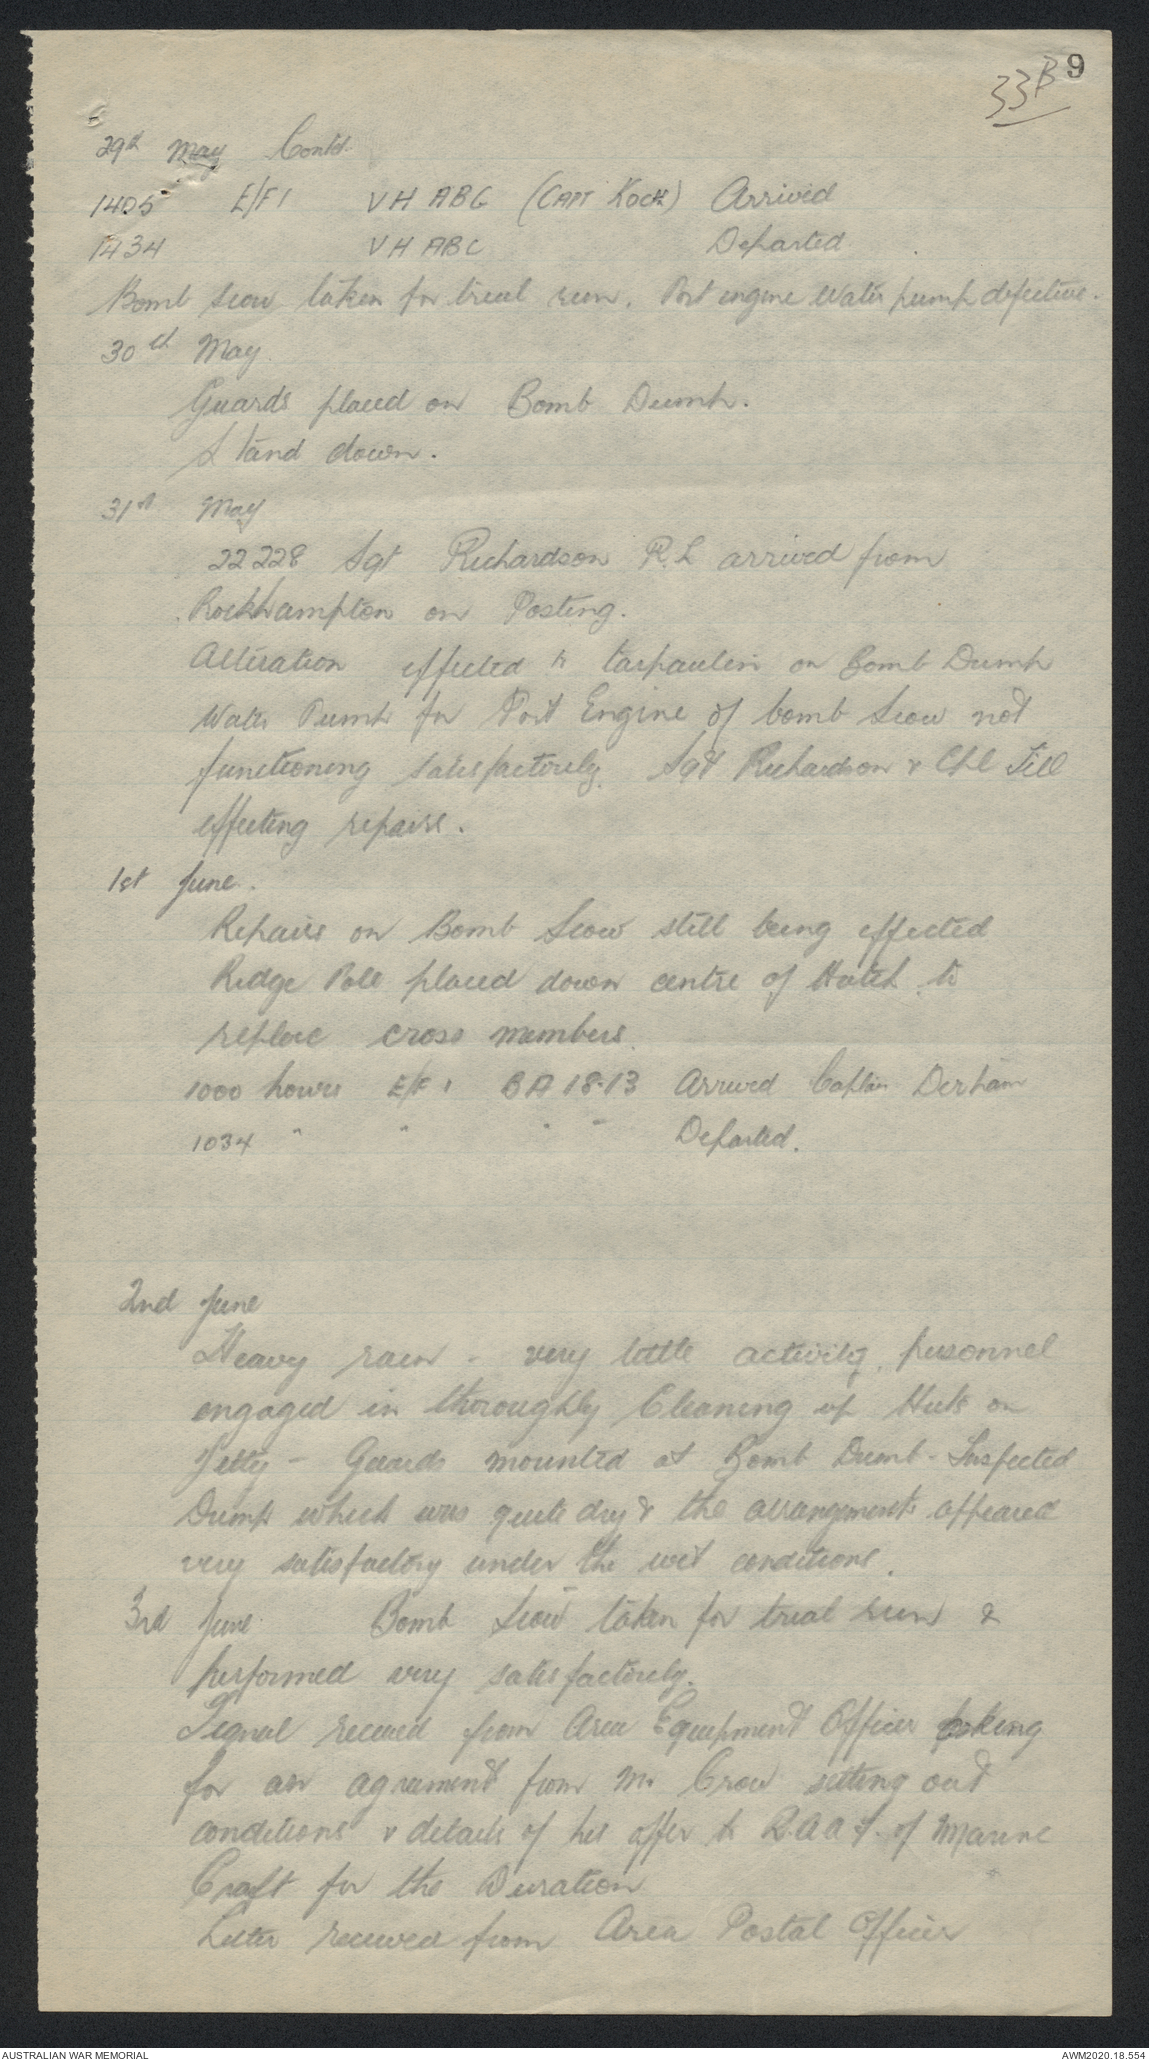 9
33B
29th May Contd.
1405 E/F1 VH ABG (CAPT KOCK) Arrived
1434 VH ABC Departed
Bomb scow taken for trial run. Port engine Water pump defective.
30th May
Guards placed on Bomb Dump.
Stand down.
31st May
22228 Sgt Richardson R.L arrived from
Rockhampton on Posting.
Alteration effected to tarpaulin on Bomb Dump
Water Pump for Port Engine of bomb Scow not
functioning satisfactorily. Sgt Richardson & Cpl Till
effecting repairs.
1st June.
Repairs on Bomb Scow still being effected
Ridge Pole placed down centre of Hatch to
replace cross members.
1000 hours E/F 1 BA 18-13 Arrived Captain Derham
1034 " " " " Departed.
2nd June
Heavy rain - very little activity, personnel
engaged in thoroughly Cleaning up Huts on
Jetty - Guards mounted at Bomb Dump - Inspected
Dump which was quite dry & the arrangements appeared
very satisfactory under the wet conditions.
3rd June Bomb Scow taken for trial run &
performed very satisfactorily.
Signal received from Area Equipment Officer asking
for an agreement from Mr Crow setting out
conditions & details of his offer to R.A.A.F. of Marine
Craft for the Duration
Letter received from Area Postal Officer
AUSTRALIAN WAR MEMORIAL
AWM2020.18.554